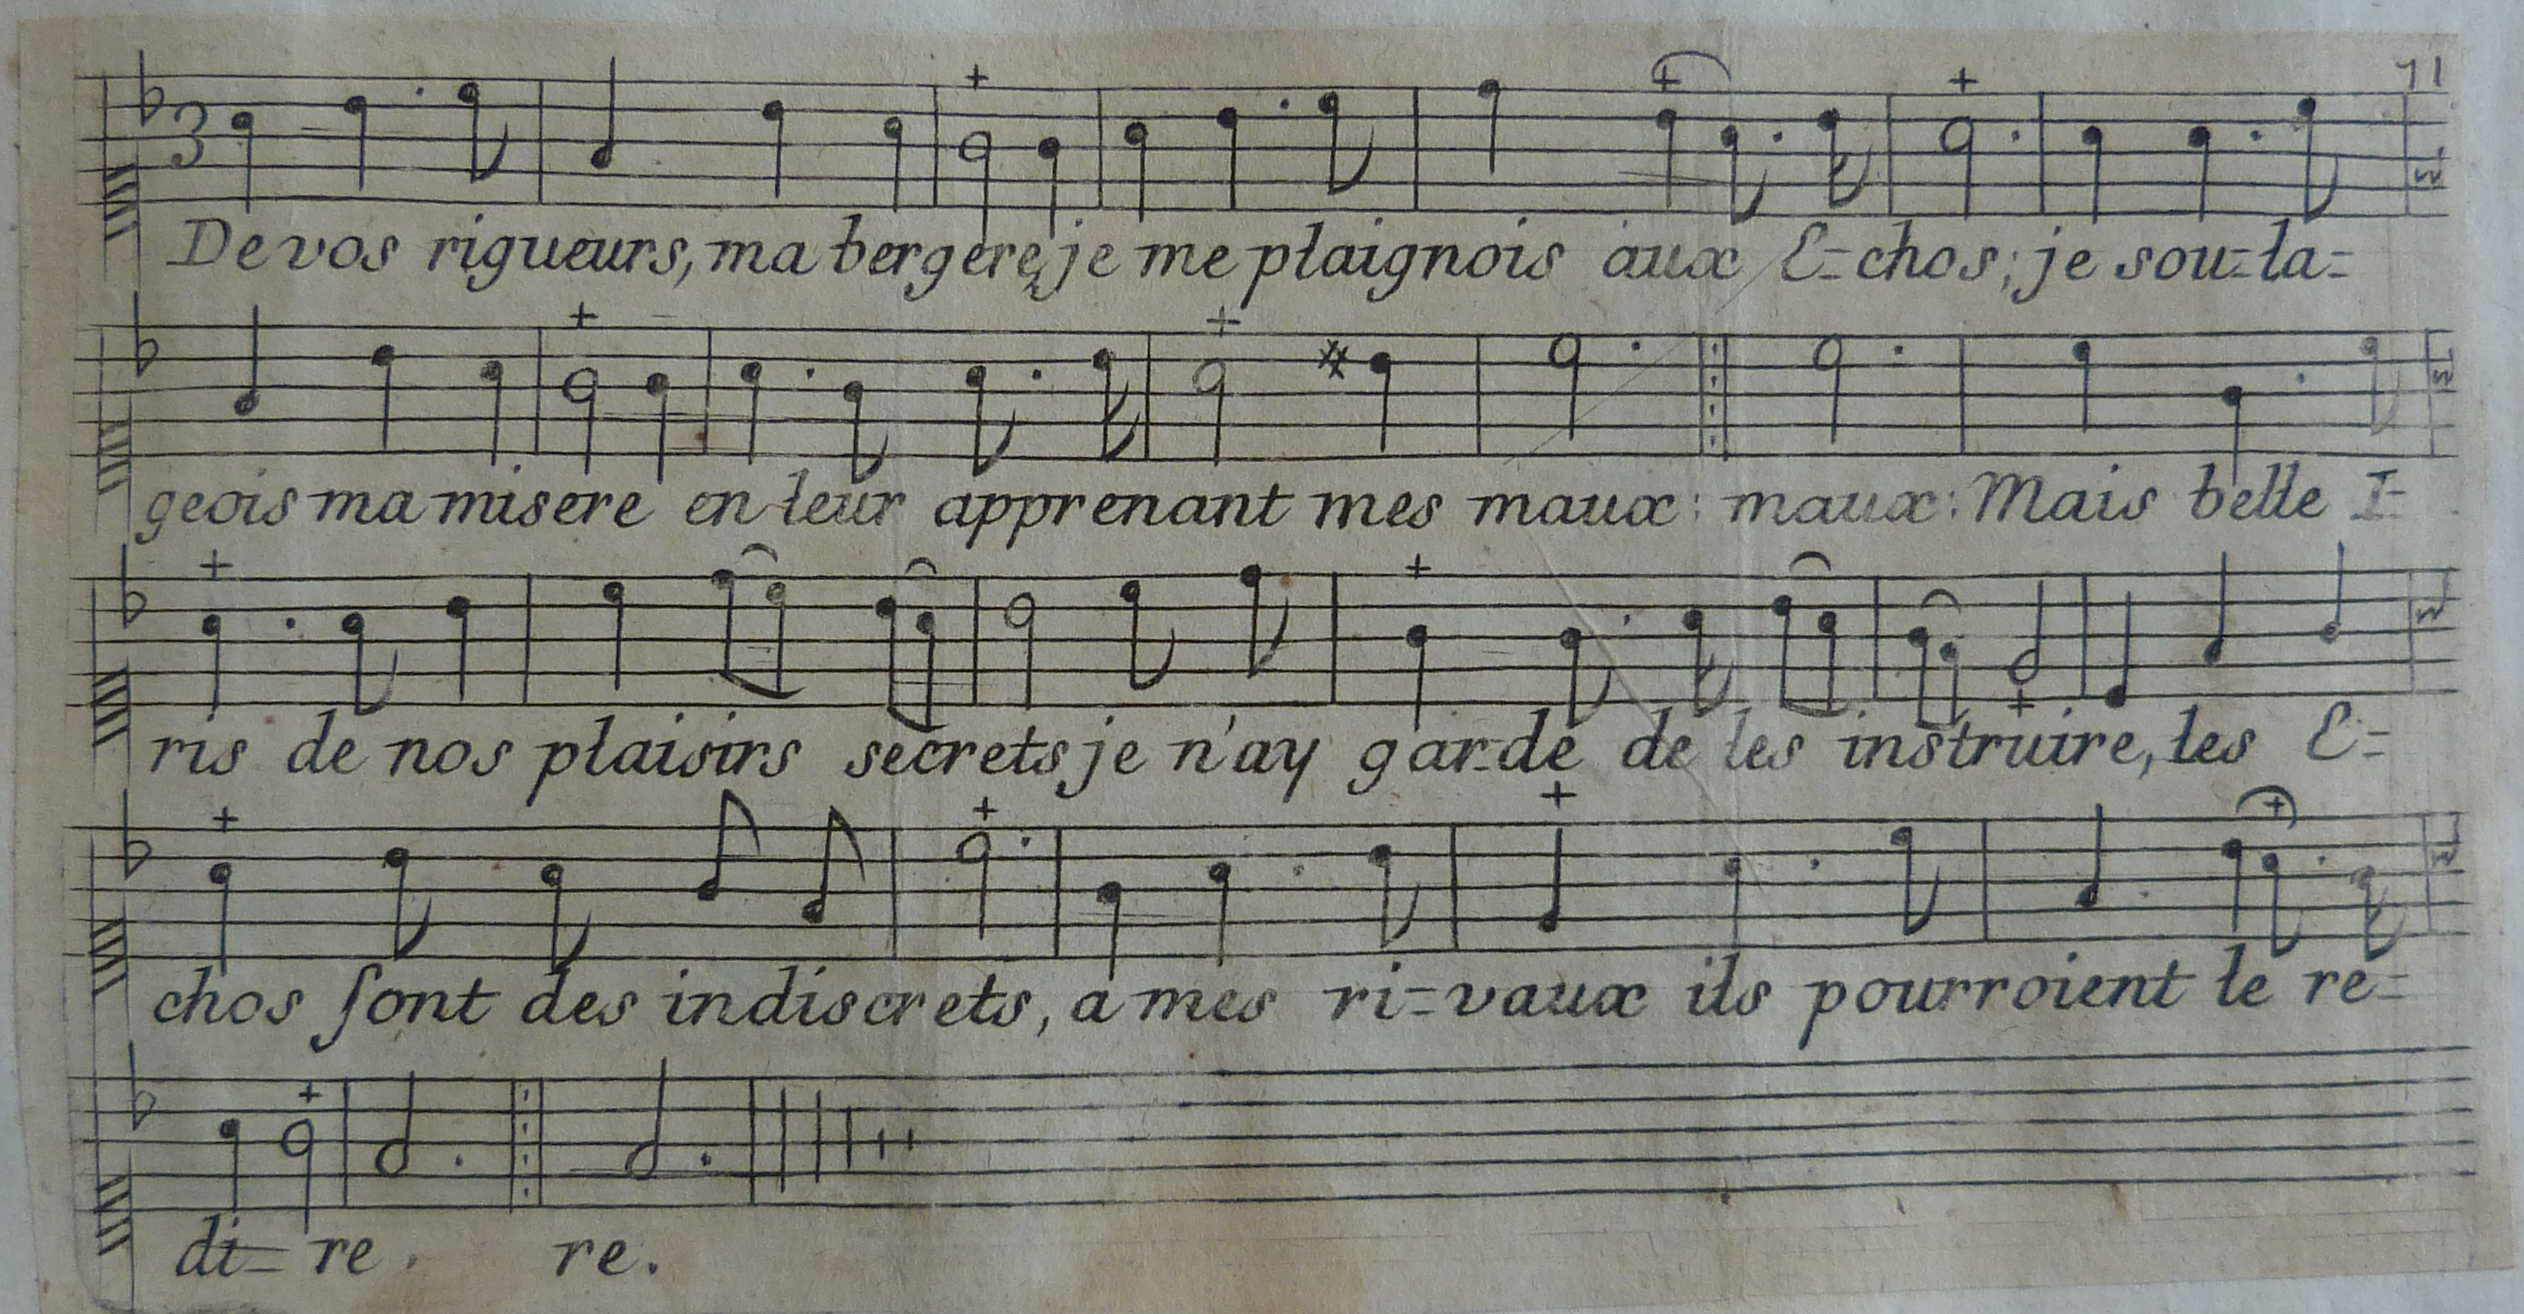 71
3
De vos rigueurs, ma bergere, je me plaignois aux E=chos; je sou=la=
geois ma misere en leur apprenant mes maux: maux: Mais belle I=
ris de nos plaisirs secrets je n'ay garde de les instruire, les E=
chos sont des indiscrets, a mes ri=vaux ils pourroient le re=
di=re. re.